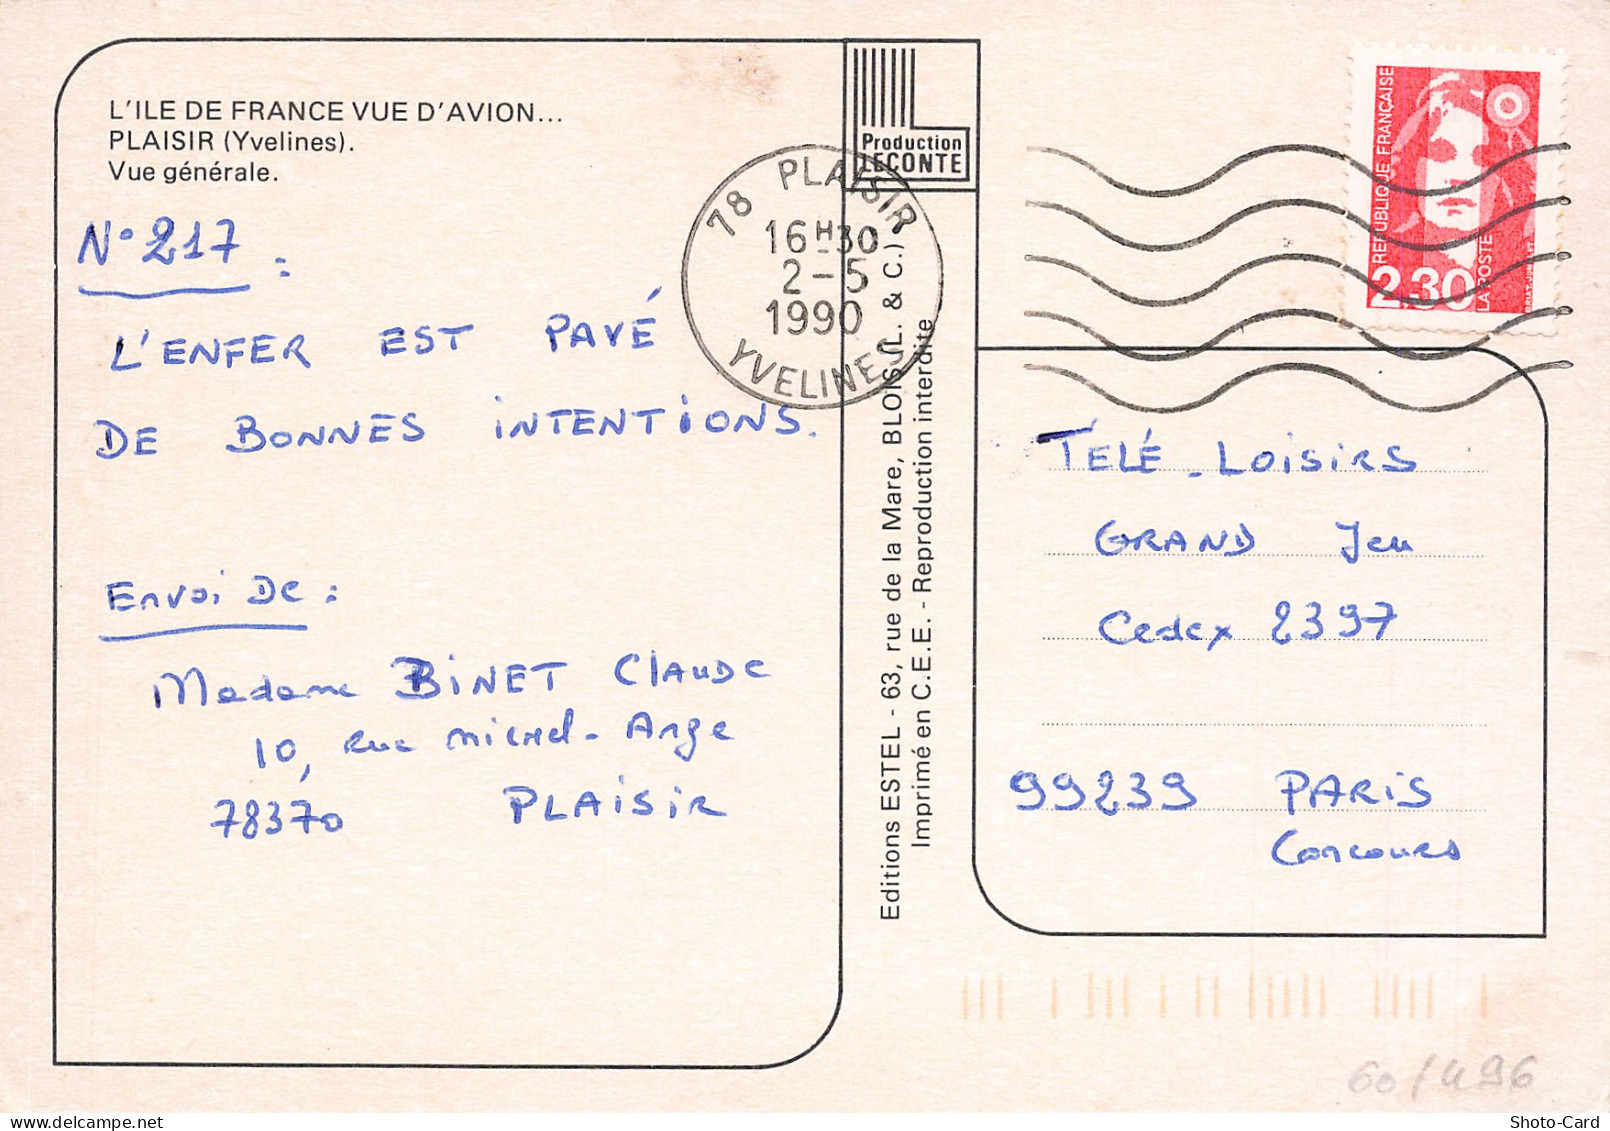 L'ILE DE FRANCE VUE D'AVION...
PLAISIR (Yvelines).
Vue générale.
N° 217 :
L'ENFER EST PAVÉ
DE BONNES INTENTIONS.
Envoi De :
Madame BINET Claude
10, rue Michel-Ange
78370 PLAISIR
Production
LECONTE
78 PLAISIR
16H30
2-5
1990
YVELINES
Editions ESTEL - 63, rue de la Mare, BLOIS (L. & C.)
Imprimé en C.E.E. - Reproduction interdite
REPUBLIQUE FRANÇAISE
2,30
LA POSTE
TÉLÉ-LOISIRS
GRAND Jeu
Cedex 2397
99239 PARIS
Concours
60/496
Shoto-Card